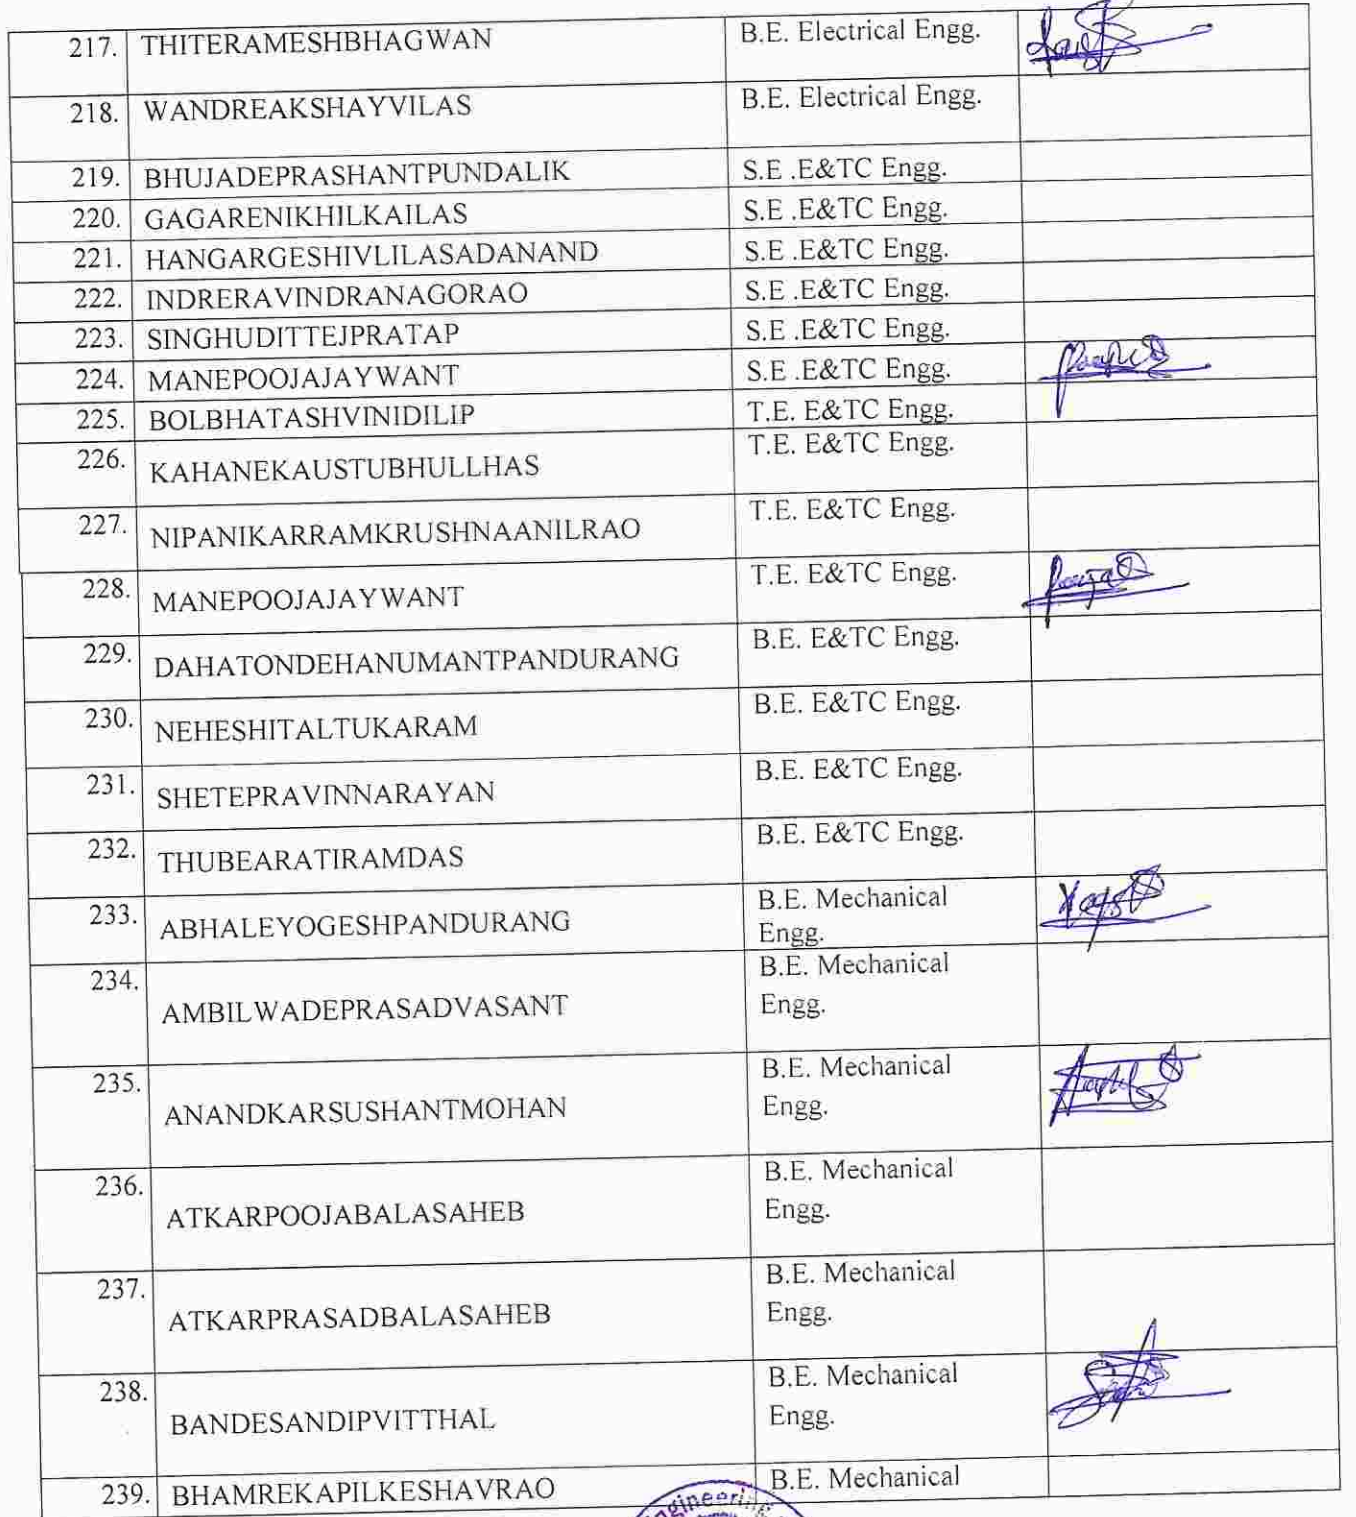 217. THITERAMESHBHAGWAN B.E. Electrical Engg.
218. WANDREAKSHAYVILAS B.E. Electrical Engg.
219. BHUJADEPRASHANTPUNDALIK S.E .E&TC Engg.
220. GAGARENIKHILKAILAS S.E .E&TC Engg.
221. HANGARGESHIVLILASADANAND S.E .E&TC Engg.
222. INDRERAVINDRANAGORAO S.E .E&TC Engg.
223. SINGHUDITTEJPRATAP S.E .E&TC Engg.
224. MANEPOOJAJAYWANT S.E .E&TC Engg.
225. BOLBHATASHVINIDILIP T.E. E&TC Engg.
226. KAHANEKAUSTUBHULLHAS T.E. E&TC Engg.
227. NIPANIKARRAMKRUSHNAANILRAO T.E. E&TC Engg.
228. MANEPOOJAJAYWANT T.E. E&TC Engg.
229. DAHATONDEHANUMANTPANDURANG B.E. E&TC Engg.
230. NEHESHITALTUKARAM B.E. E&TC Engg.
231. SHETEPRAVINNARAYAN B.E. E&TC Engg.
232. THUBEARATIRAMDAS B.E. E&TC Engg.
233. ABHALEYOGESHPANDURANG B.E. Mechanical
Engg.
234. AMBILWADEPRASADVASANT B.E. Mechanical
Engg.
235. ANANDKARSUSHANTMOHAN B.E. Mechanical
Engg.
236. ATKARPOOJABALASAHEB B.E. Mechanical
Engg.
237. ATKARPRASADBALASAHEB B.E. Mechanical
Engg.
238. BANDESANDIPVITTHAL B.E. Mechanical
Engg.
239. BHAMREKAPILKESHAVRAO B.E. Mechanical